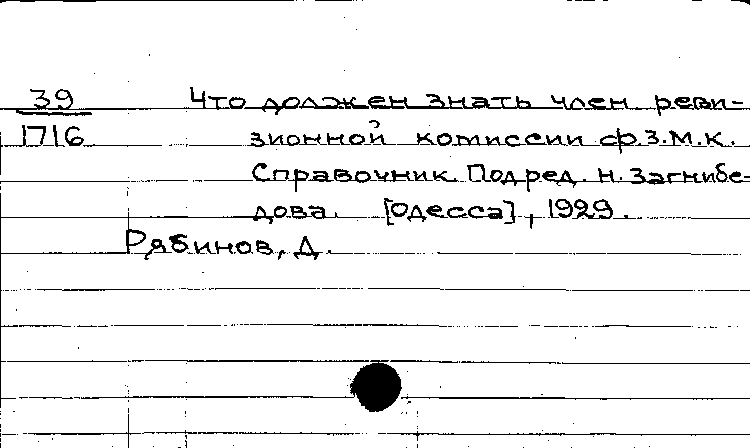 39 Что должен знать член реви-
1716 зионной комиссии ф.З.М.К.
Справочник. Под ред. Н. Загнибе-
дова. [Одесса], 1929.
Рябинов, Д.